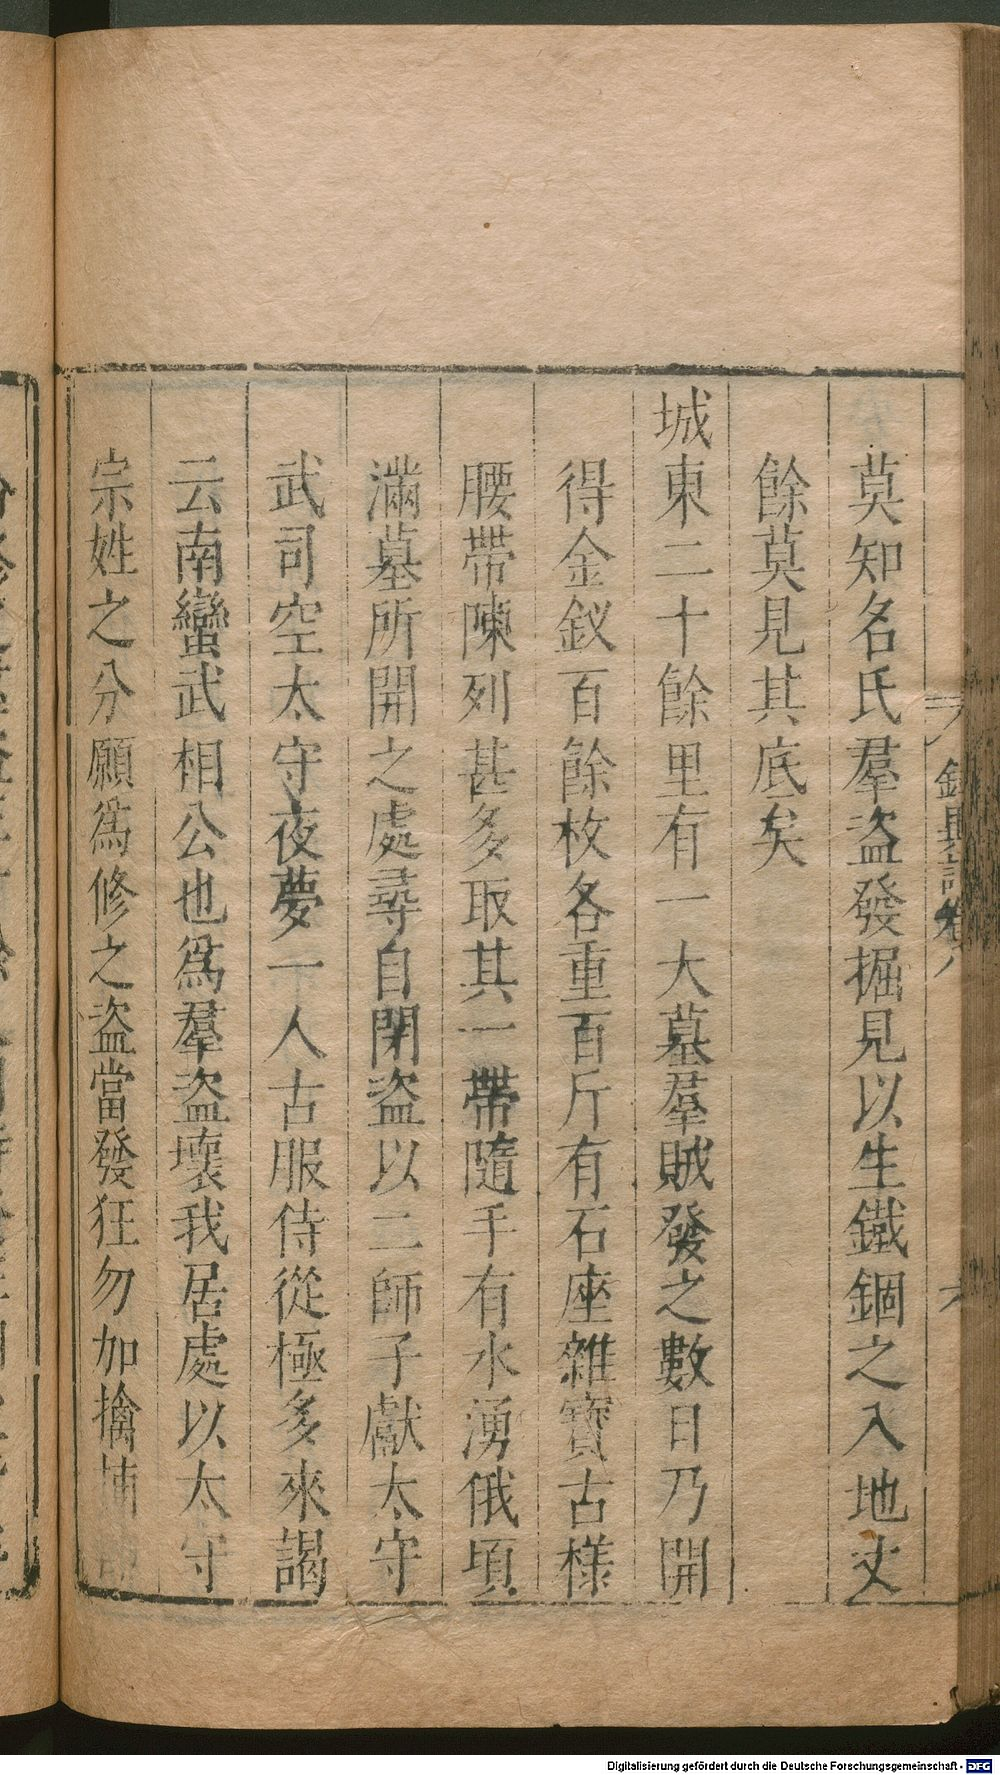 莫知名氏羣盜發掘見以生鐵錮之入地丈
餘莫見其底矣
城東二十餘里有一大墓羣賊發之數日乃開
得金釵百餘枚各重百斤有石座雜寶古樣
腰帶陳列甚多取其一帶隨手有水湧俄頃
滿墓所開之處尋自閉盜以二師子獻太守
武司空太守夜夢一人古服侍從極多來謁
云南蠻武相公也爲羣盜壞我居處以太守
宗姓之分願爲修之盜當發狂勿加擒捕
六
Digitalisierung gefördert durch die Deutsche Forschungsgemeinschaft - DFG